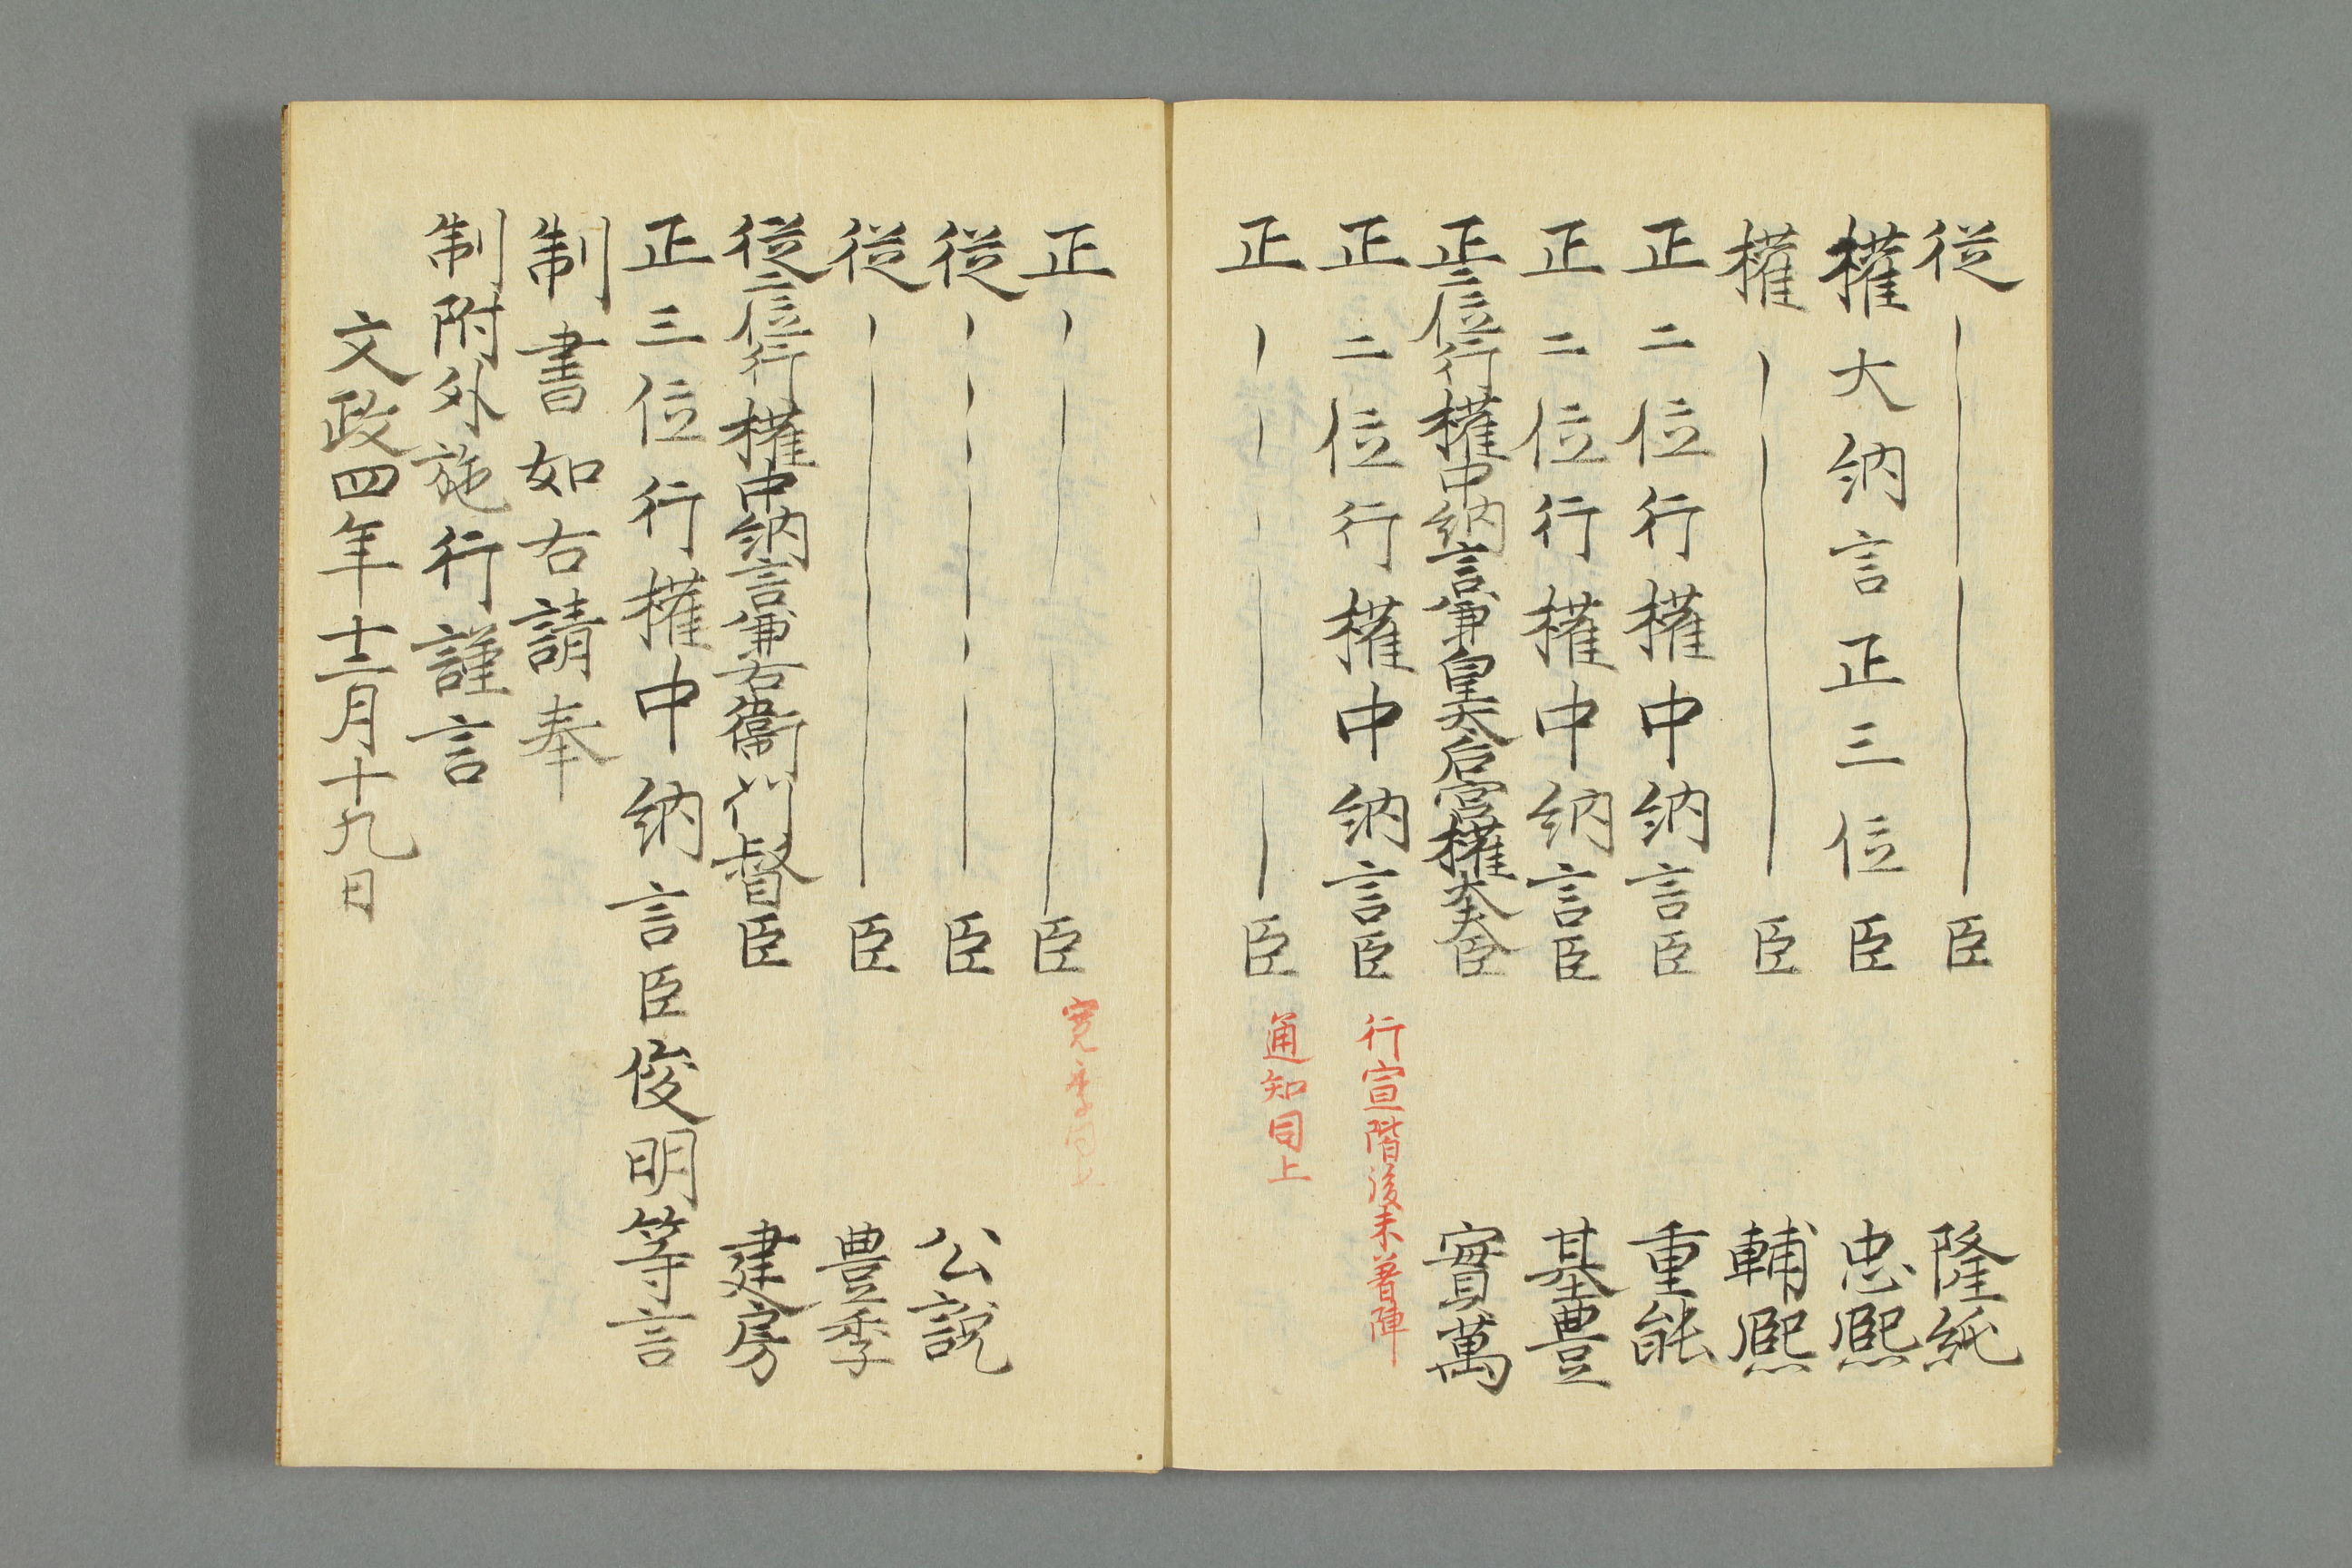 従｜臣 隆純
権大納言正三位臣 忠熈
権｜臣 輔熈
正二位行権中納言臣 重能
正二位行権中納言臣 基豊
正二位行権中納言兼皇太后宮権大夫臣 實萬
正二位行権中納言臣 行宣階後未著陣
正｜臣 通知同上
正｜臣
従｜臣 公説
従｜臣 豊季
従二位行権中納言兼右衛門督臣 建房
正三位行権中納言臣俊明等言
制書如右請奉
制附外施行謹言
文政四年十二月十九日